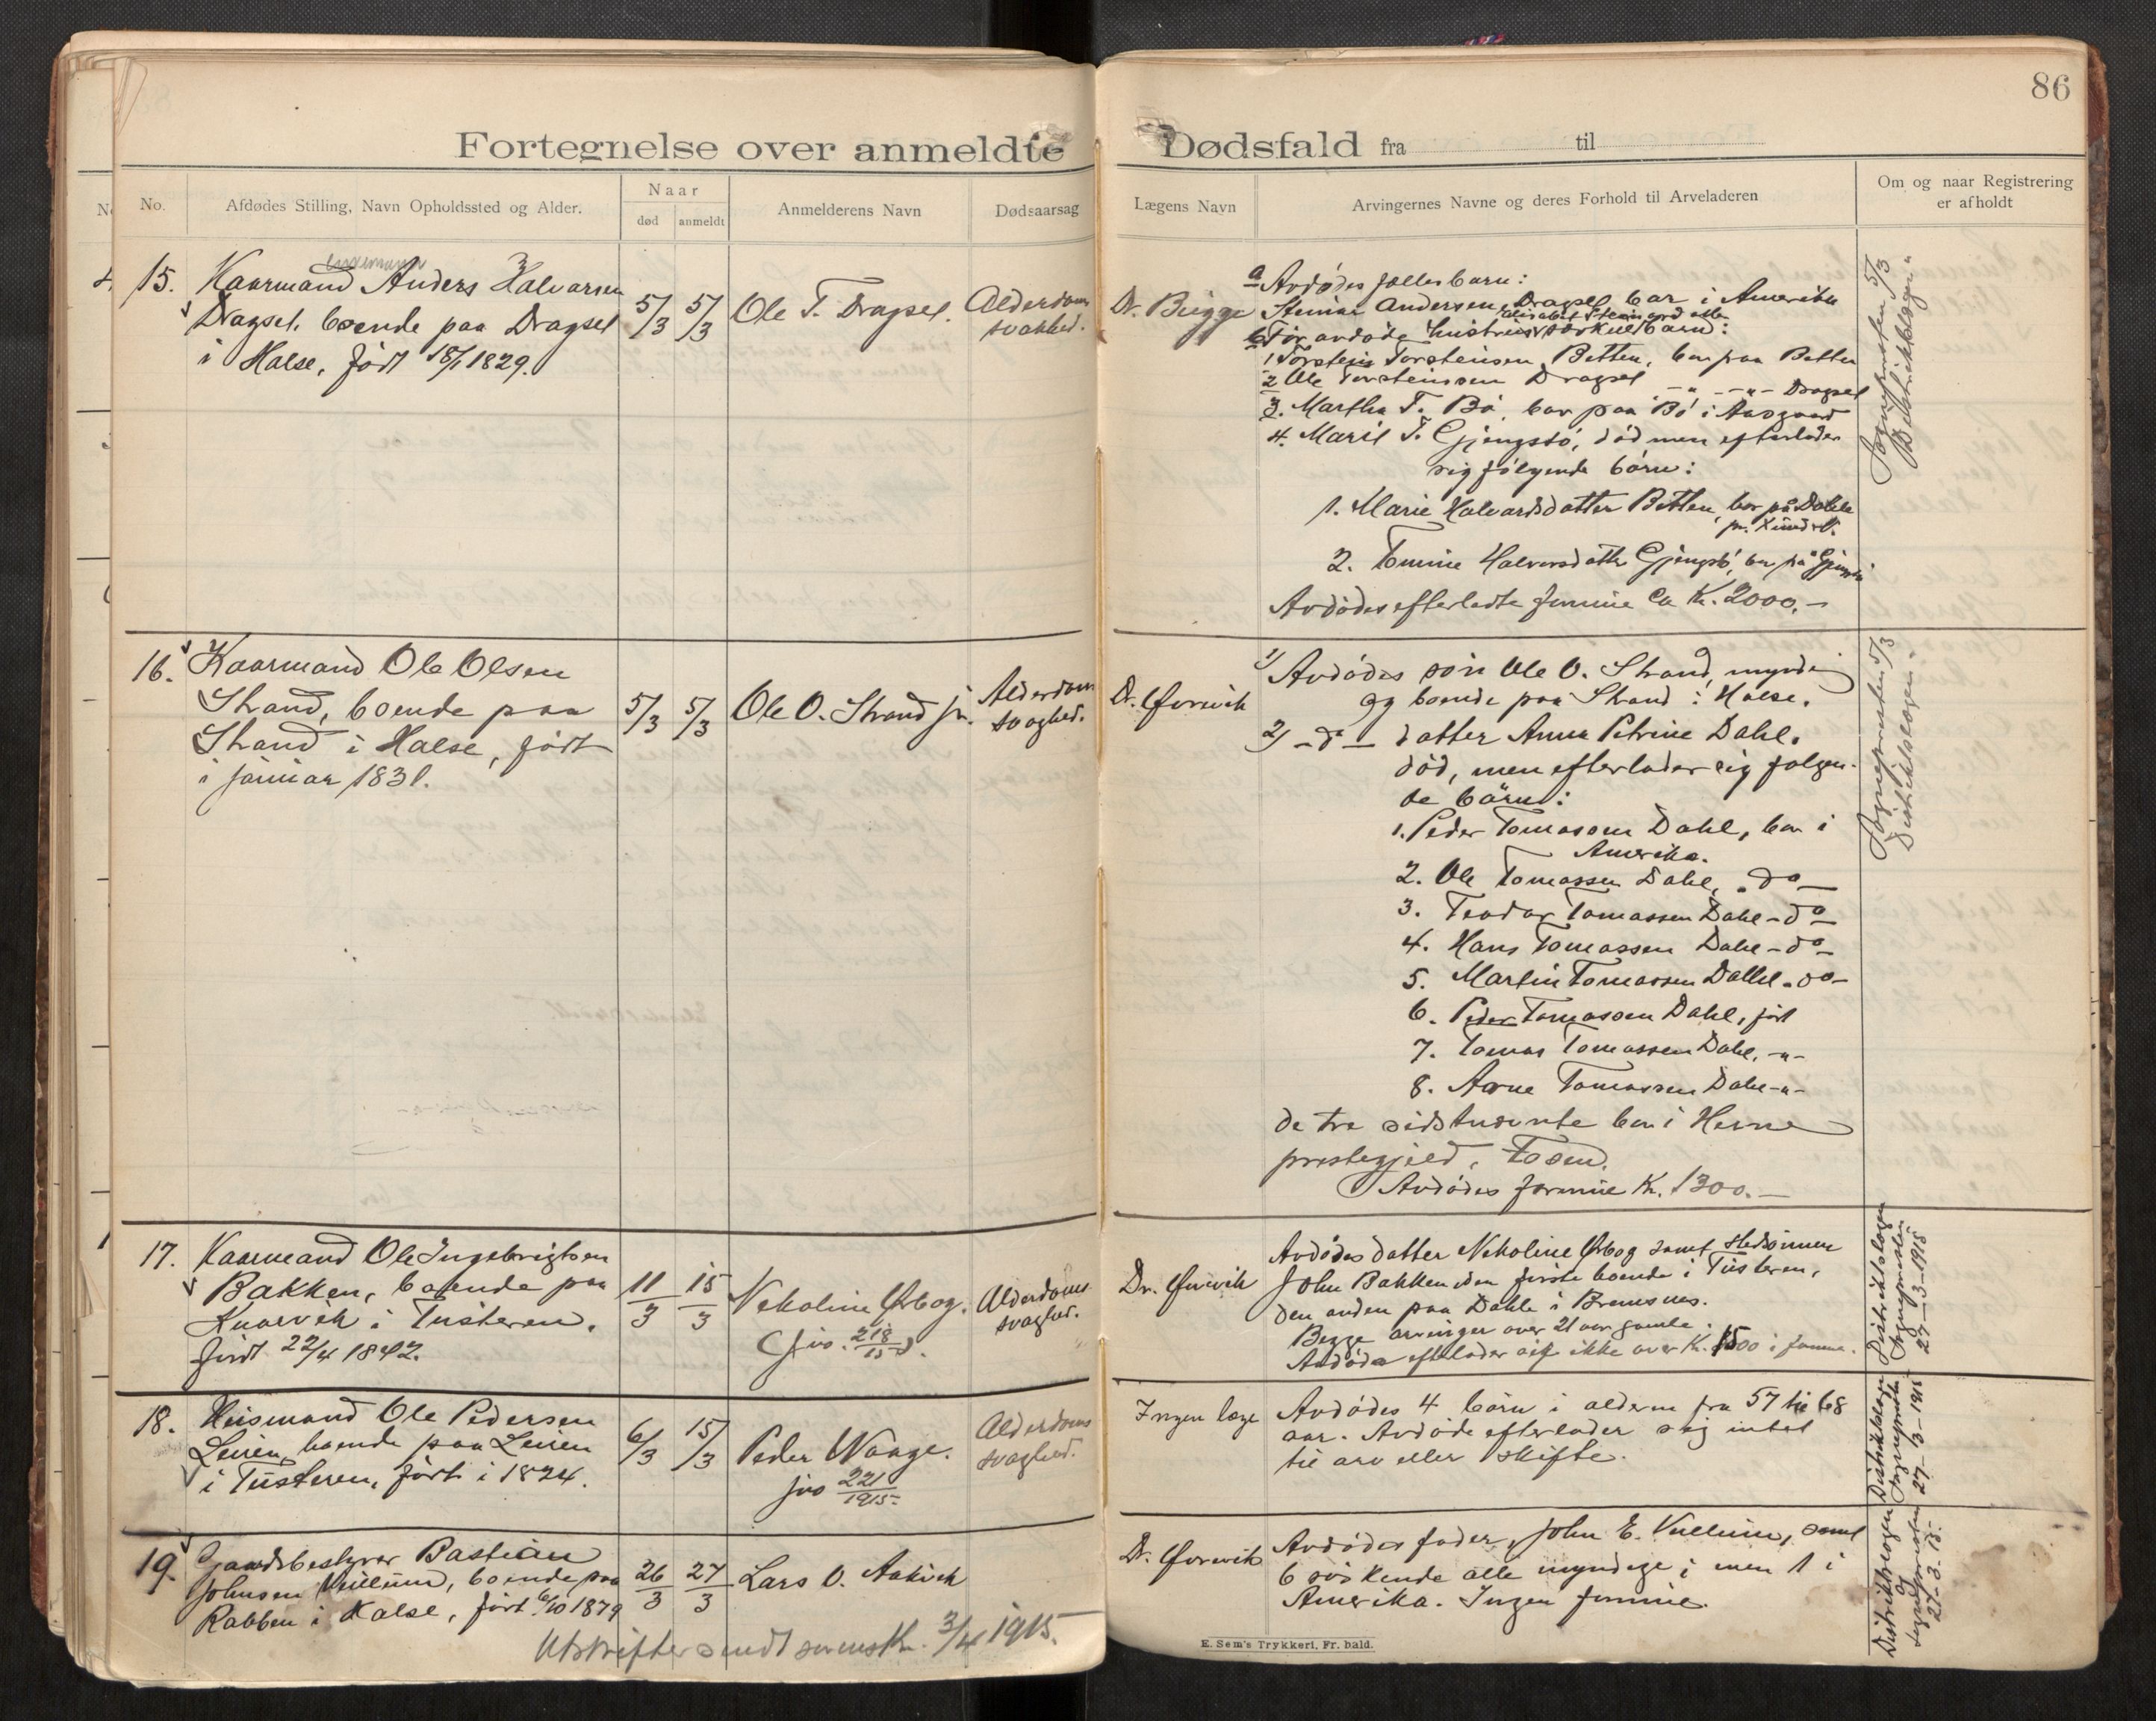 86
Fortegnelse over anmeldte Dødsfald fra til
No.
Afdødes Stilling, Navn Opholdssted og Alder.
Naar
død
anmeldt
Anmelderens Navn
Dødsaarsag
Lægens Navn
Arvingernes Navne og deres Forhold til Arveladeren
Om og naar Registrering
er afholdt
15.
enkemann
Kaarmand Anders Halvarsen
Dragset, boende paa Dragset
i Halse, født 18/1 1829.
5/3
5/3
Ole T. Dragset.
Alderdoms
svakhed.
Dr. Bugge
a Avdødes fællesbarn:
Steinar Andersen Dragset bor i Amerika
b Før avdøde hustrus særkulbarn:
1 Torstein Torstensen Betten, bor paa Betten
2 Ole Torsteinsen Dragset -"- -"- Dragset
3. Martha T. Bø, bor paa Bø i Aasgaard
4. Marit T. Gjengstø, død men efterlader
sig følgende børn:
1. Marie Halvardsdatter Betten, bor på Dahle
pr. Xund N.
2. Halvorsdatter Gjengstø, bor på
Avdødes efterladte formue Ca Kr. 2000.-
Sognepresten 5/3
Distriktslægen "
16.
Kaarmand Ole Olsen
Strand, boende paa
Strand i Halse, født
i januar 1831.
5/3
5/3
Ole O. Strand jr.
Alderdom
svaghed.
Dr. Ørsvik
1/ Avdødes søn Ole O. Strand, myndig
og boende paa Strand i Halse.
2/ - do - datter Anna Petrine Dahl.
død, men efterlader sig følgen-
de børn:
1. Peder Tomassen Dahl, bor i
Amerika.
2. Ole Tomassen Dahl, - do -
3. Teodor Tomassen Dahl - do -
4. Hans Tomassen Dahl - do -
5. Martin Tomassen Dahl - do -
6. Peder Tomassen Dahl, født
7. Tomas Tomassen Dahl, -"-
8. Arne Tomassen Dahl -"-
de tre sidstnævnte bor i Hevne
prestegjeld,
Avdødes formue Kr. 1300.-
Sognepresten 5/3
Distriktslægen "
17.
Kaarmand Ole Ingebrigtsen
Bakken, boende paa
Knarvik i Tusteren.
født 22/4 1842.
11/3
15/3
Nekoline Ørbog.
(jvo. 218/15).
Alderdoms
svaghed.
Dr. Ørsvik
Avdødes datter Nekoline Ørbog samt stedsønnen
John Bakken den første boende i Tusteren,
den anden paa Dahle i Bremsnes.
Begge arvinger over 21 aar gamle.
Avdøde efterlader sig ikke over Kr. 1500 i formue.
Distriktslægen
Sognepresten
27-3-1915
18.
Husmand Ole Pedersen
Leiren, boende paa Leiren
i Tusteren, født i 1824.
6/3
15/3
Peder Waage.
jvo 221/1915
Alderdoms
svaghed.
Ingen læge
Avdødes 4 børn i alderen fra 57 til 68
aar. Avdøde efterlader sig intet
til arv eller skifte.
Distriktslægen
Sognepresten
27-3-1915
19.
Gaardsbestyrer Bastian
Johnsen Vullum, boende paa
Rabben i Halse, født 6/10 1879
26/3
27/3
Lars O. Aakvik
Dr. Ørsvik
Avdødes fader, John E. Vullum, samt
6 søskende alle myndige; men 1 i
Amerika. Ingen formue.
Distriktslægen
og
Sognepresten
27-3-15.
Utskrifter sendt sorensk. 3/4 1915.
E. Sem's Trykkeri, Fr. hald.